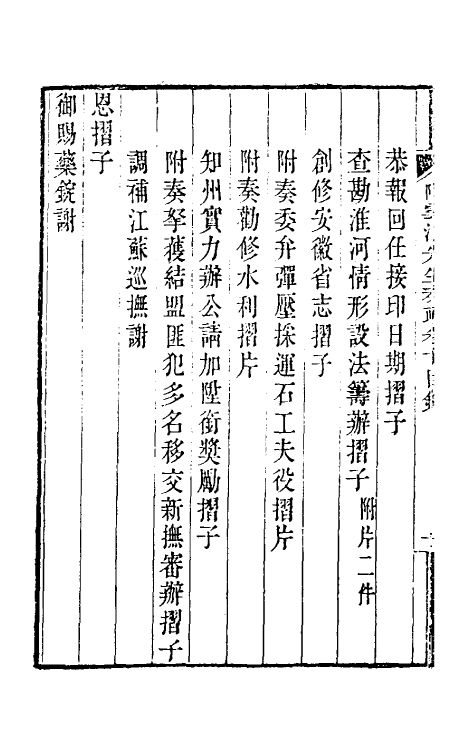 恭報回任接印日期摺子
查勘淮河情形設法籌辦摺子 附片二件
創修安徽省志摺子
附奏委弁彈壓採運石工夫役摺片
附奏勸修水利摺片
知州實力辦公請加陞銜獎勵摺子
附奏拏獲結盟匪犯多名移交新撫審辦摺子
調補江蘇巡撫謝
恩摺子
御賜藥錠謝